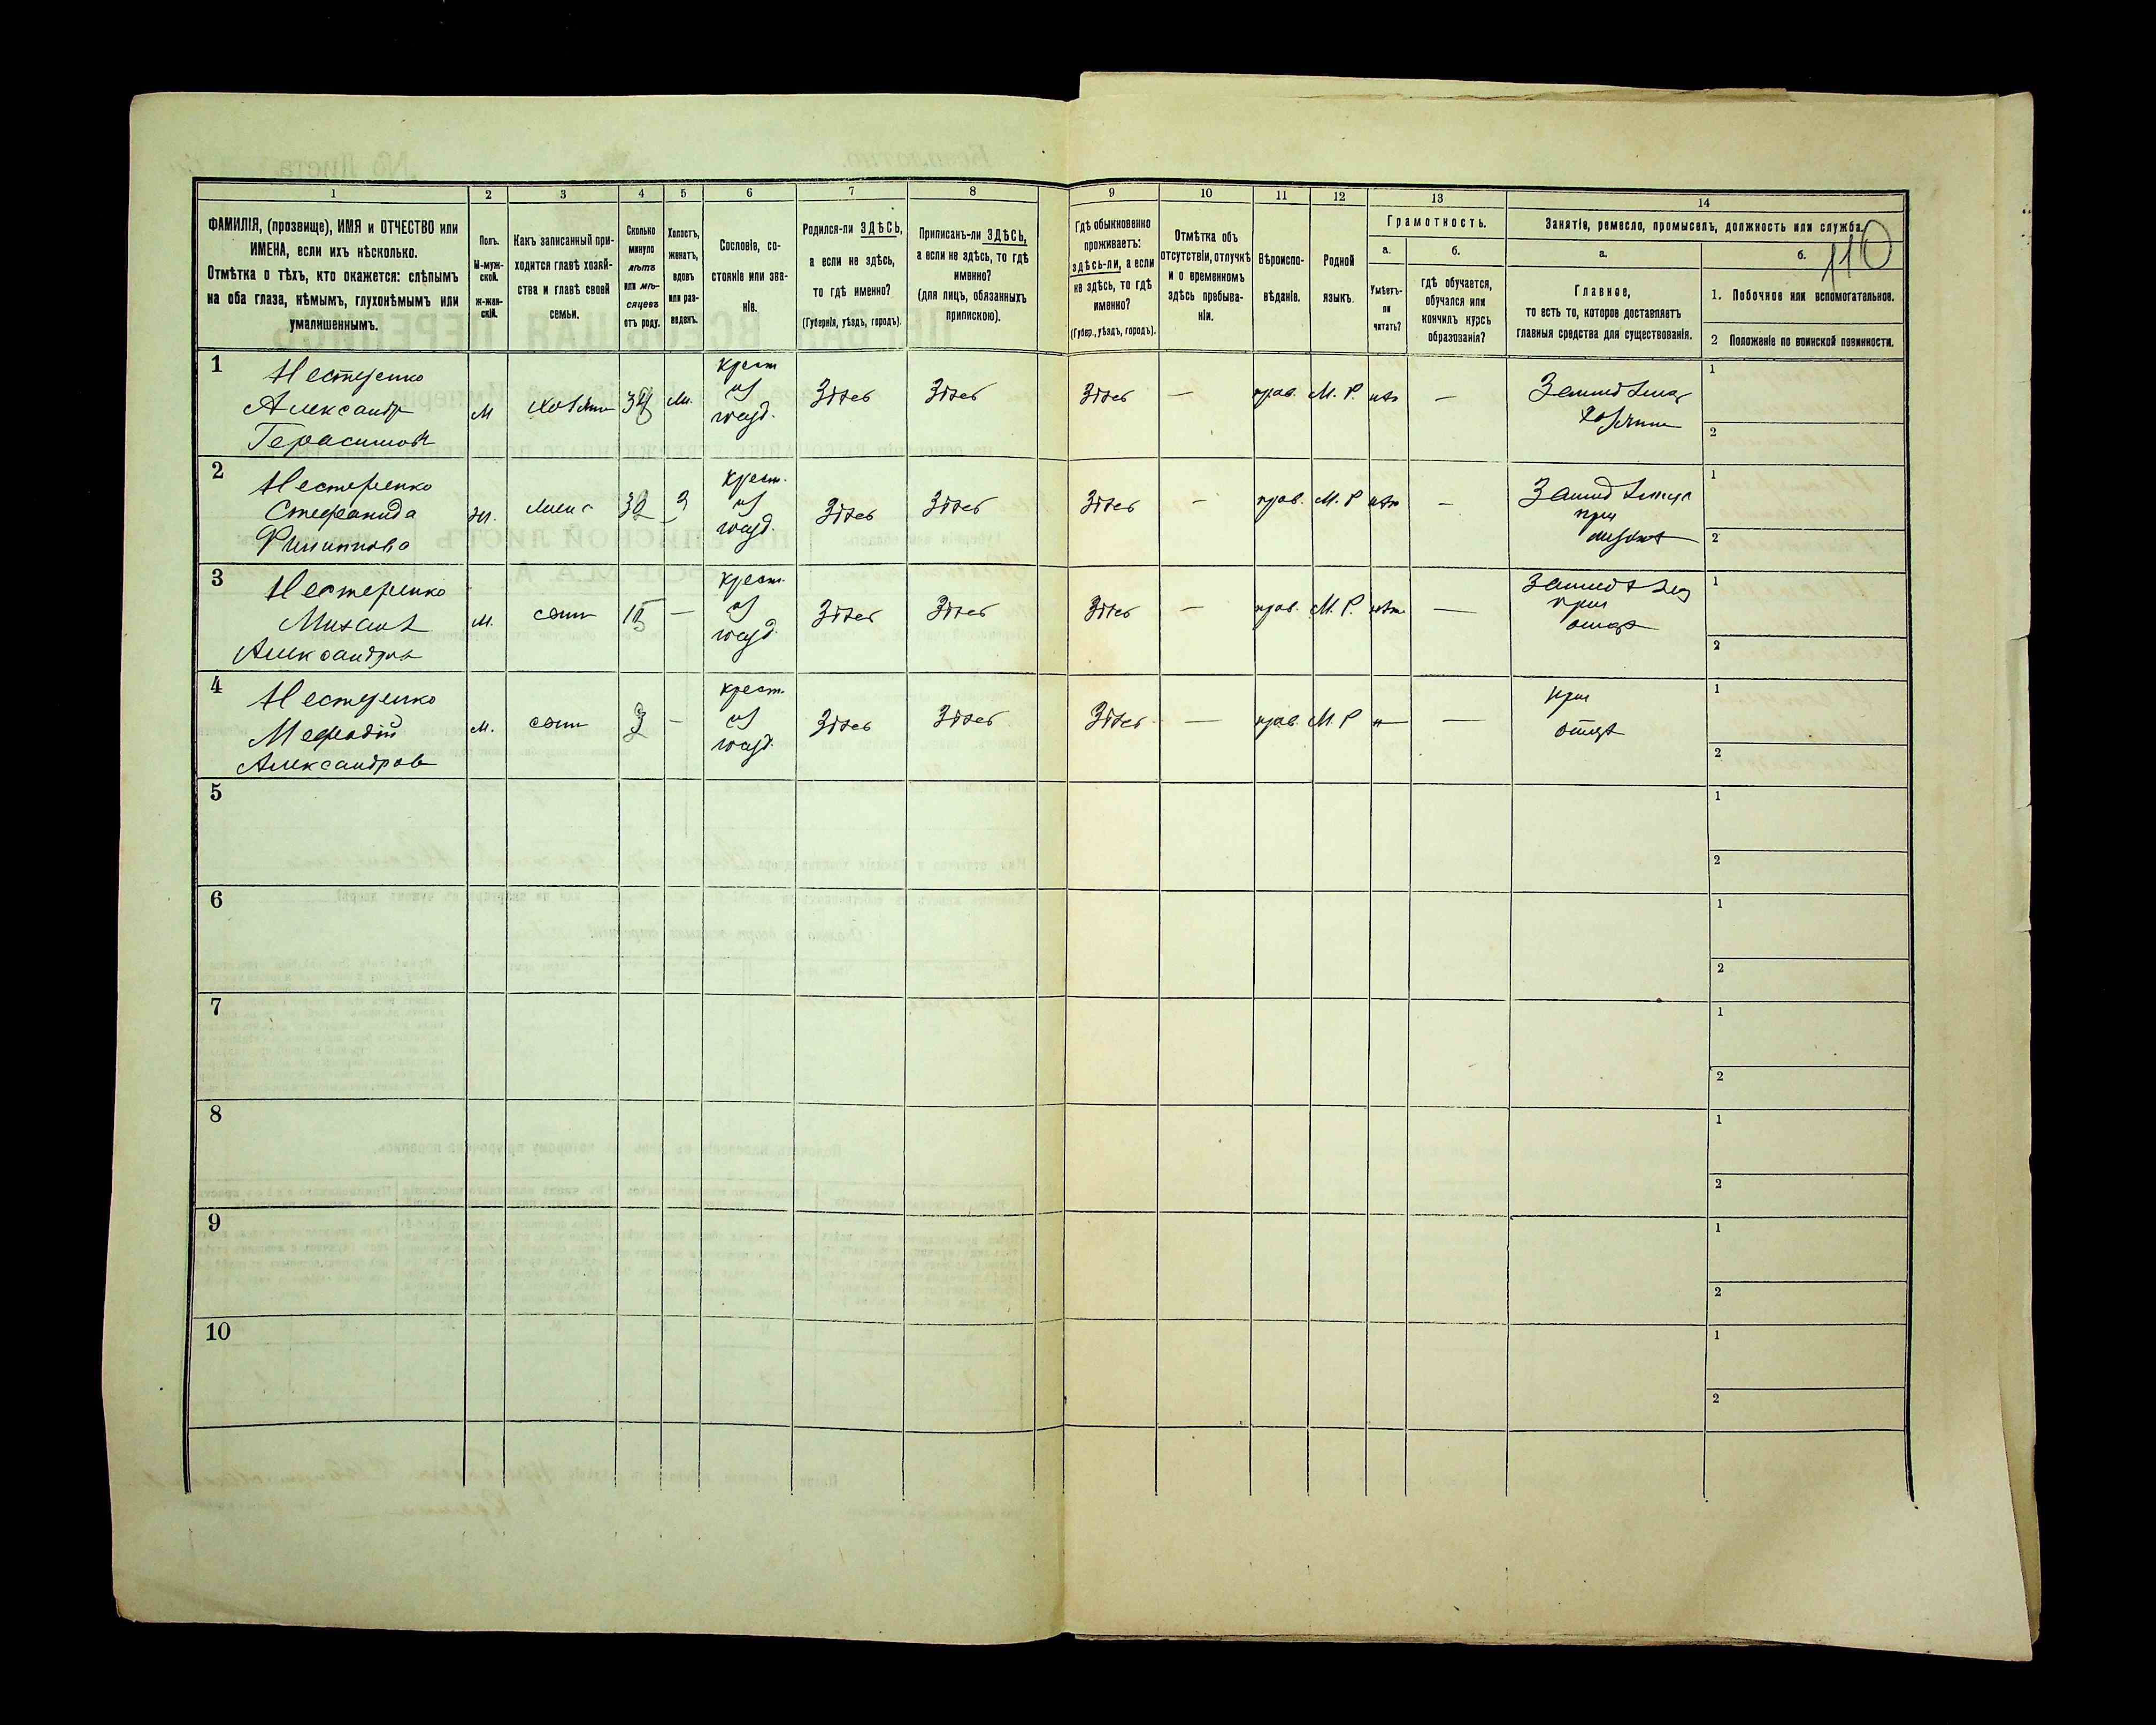 110
1 2 3 4 5 6 7 8 9 10 11 12 13 14
ФАМИЛІЯ, (прозвище), ИМЯ и ОТЧЕСТВО или
ИМЕНА, если ихъ нѣсколько.
Отмѣтка о тѣхъ, кто окажется: слѣпымъ
на оба глаза, нѣмымъ, глухонѣмымъ или
умалишеннымъ.
Полъ.
М-муж-
ской.
ж-жен-
скій.
Какъ записанный при-
ходится главѣ хозяй-
ства и главѣ своей
семьи.
Сколько
минуло
лѣтъ
или мѣ-
сяцевъ
отъ роду.
Холостъ,
женатъ,
вдовъ
или раз-
веденъ.
Сословіе, со-
стояніе или зва-
ніе.
Родился-ли ЗДѢСЬ,
а если не здѣсь,
то гдѣ именно?
(Губернія, уѣздъ, городъ).
Приписанъ-ли ЗДѢСЬ,
а если не здѣсь, то гдѣ
именно?
(для лицъ, обязанныхъ
припискою).
Гдѣ обыкновенно
проживаетъ:
здѣсь-ли, а если
не здѣсь, то гдѣ
именно?
(Губер., уѣздъ, городъ).
Отмѣтка объ
отсутствіи, отлучкѣ
и о временномъ
здѣсь пребыва-
ніи.
Вѣроиспо-
вѣданіе.
Родной
языкъ.
Грамотность.
а.
Умѣетъ-
ли
читать?
б.
гдѣ обучается,
обучался или
кончилъ курсъ
образованія?
Занятіе, ремесло, промыселъ, должность или служба.
а.
Главное,
то есть то, которое доставляетъ
главныя средства для существованія.
б.
1. Побочное или вспомогательное.
2 Положеніе по воинской повинности.
1
Нестеренко
Александр
Герасимов
М
хозяин
М.
крест
из
госуд.
Здѣсь
Здѣсь
Здѣсь
—
прав.
М. Р.
нѣт
—
хозяин
1
2
2
Нестеренко
Стефанида
Филиппова
ж.
жена
32
З
крест.
из
госуд.
Здѣсь
Здѣсь
Здѣсь
—
прав.
М. Р
нѣт
—
при
мужѣ
1
2
3
Нестеренко
Михаил
Александров
М.
сын
—
крест.
из
госуд.
Здѣсь
Здѣсь
Здѣсь
—
прав.
М. Р.
нѣт
—
при
отцѣ
1
2
4
Нестеренко
Мефодій
Александров
М.
сын
3
—
крест.
из
госуд.
Здѣсь
Здѣсь
Здѣсь
—
прав.
М. Р
—
при
отцѣ
1
2
5
1
2
6
1
2
7
1
2
8
1
2
9
1
2
10
1
2